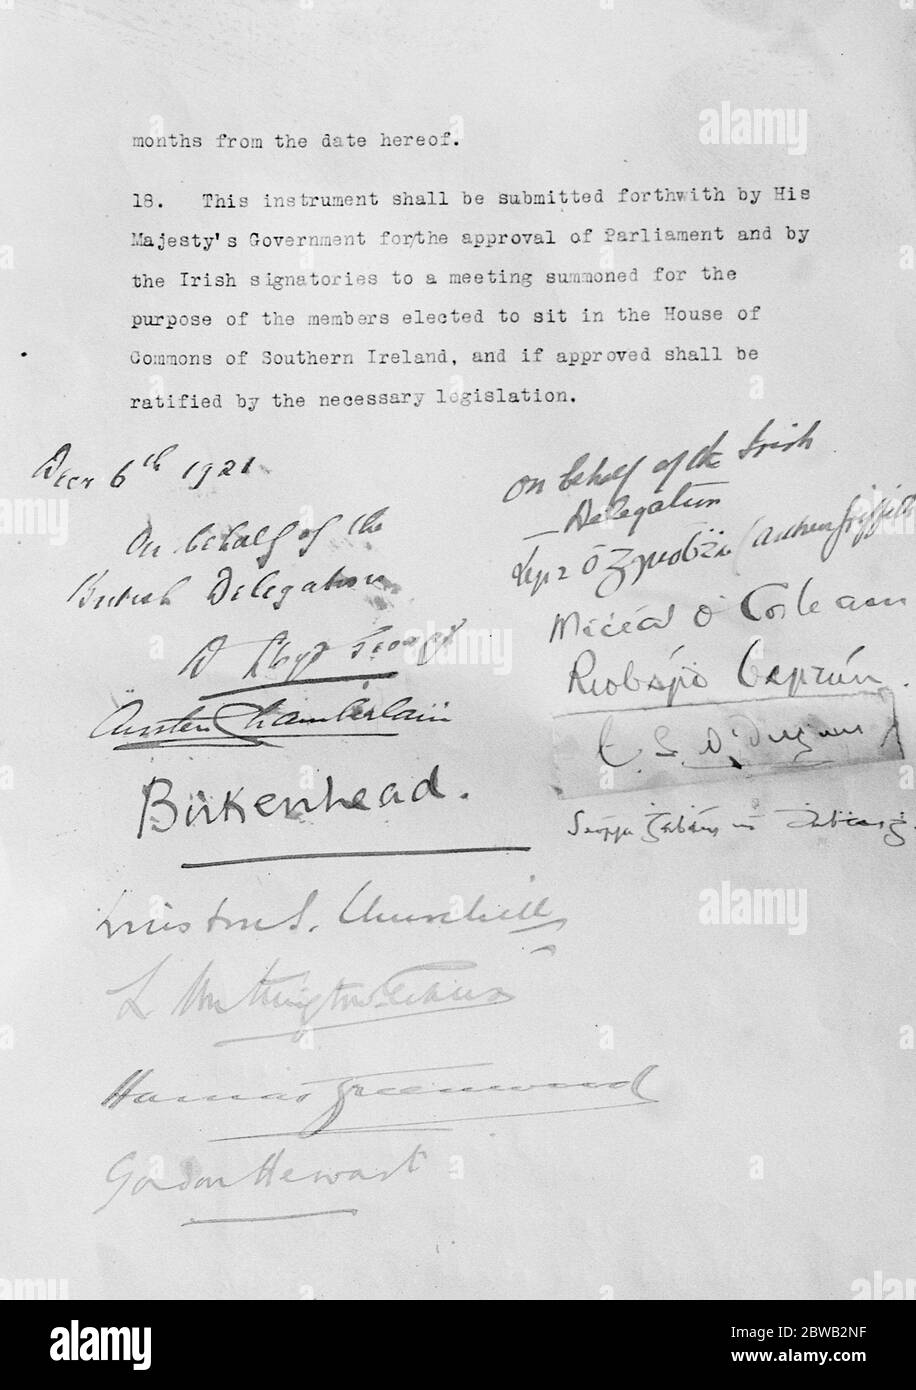 months from the date hereof.
18. This instrument shall be submitted forthwith by His
Majesty's Government for/the approval of Parliament and by
the Irish signatories to a meeting summoned for the
purpose of the members elected to sit in the House of
Commons of Southern Ireland, and if approved shall be
ratified by the necessary legislation.
Decr 6th 1921
On behalf of the
British Delegation
D Lloyd George
Austen Chamberlain
Birkenhead.
Winston S. Churchill
L Worthington-Evans
Hamar Greenwood
Gordon Hewart
On behalf of the Irish
Delegation
Art Ó Gríobhtha (Arthur Griffith)
Micéal Ó Coileain
Riobárd Bartún.
E. S. Ó Dugain
Seórsa Ghabháin uí Dhubhthaigh
alamy
Image ID: 2BWB2NF
www.alamy.com